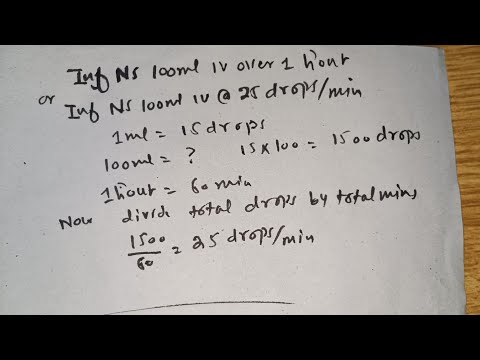 Inf NS 100ml IV over 1 hour
or
Inf NS 100ml IV @ 25 drops/min
1ml = 15 drops
100ml = ? 15 x 100 = 1500 drops
1 hour = 60 min
Now divide total drops by total mins
1500
60 = 25 drops/min